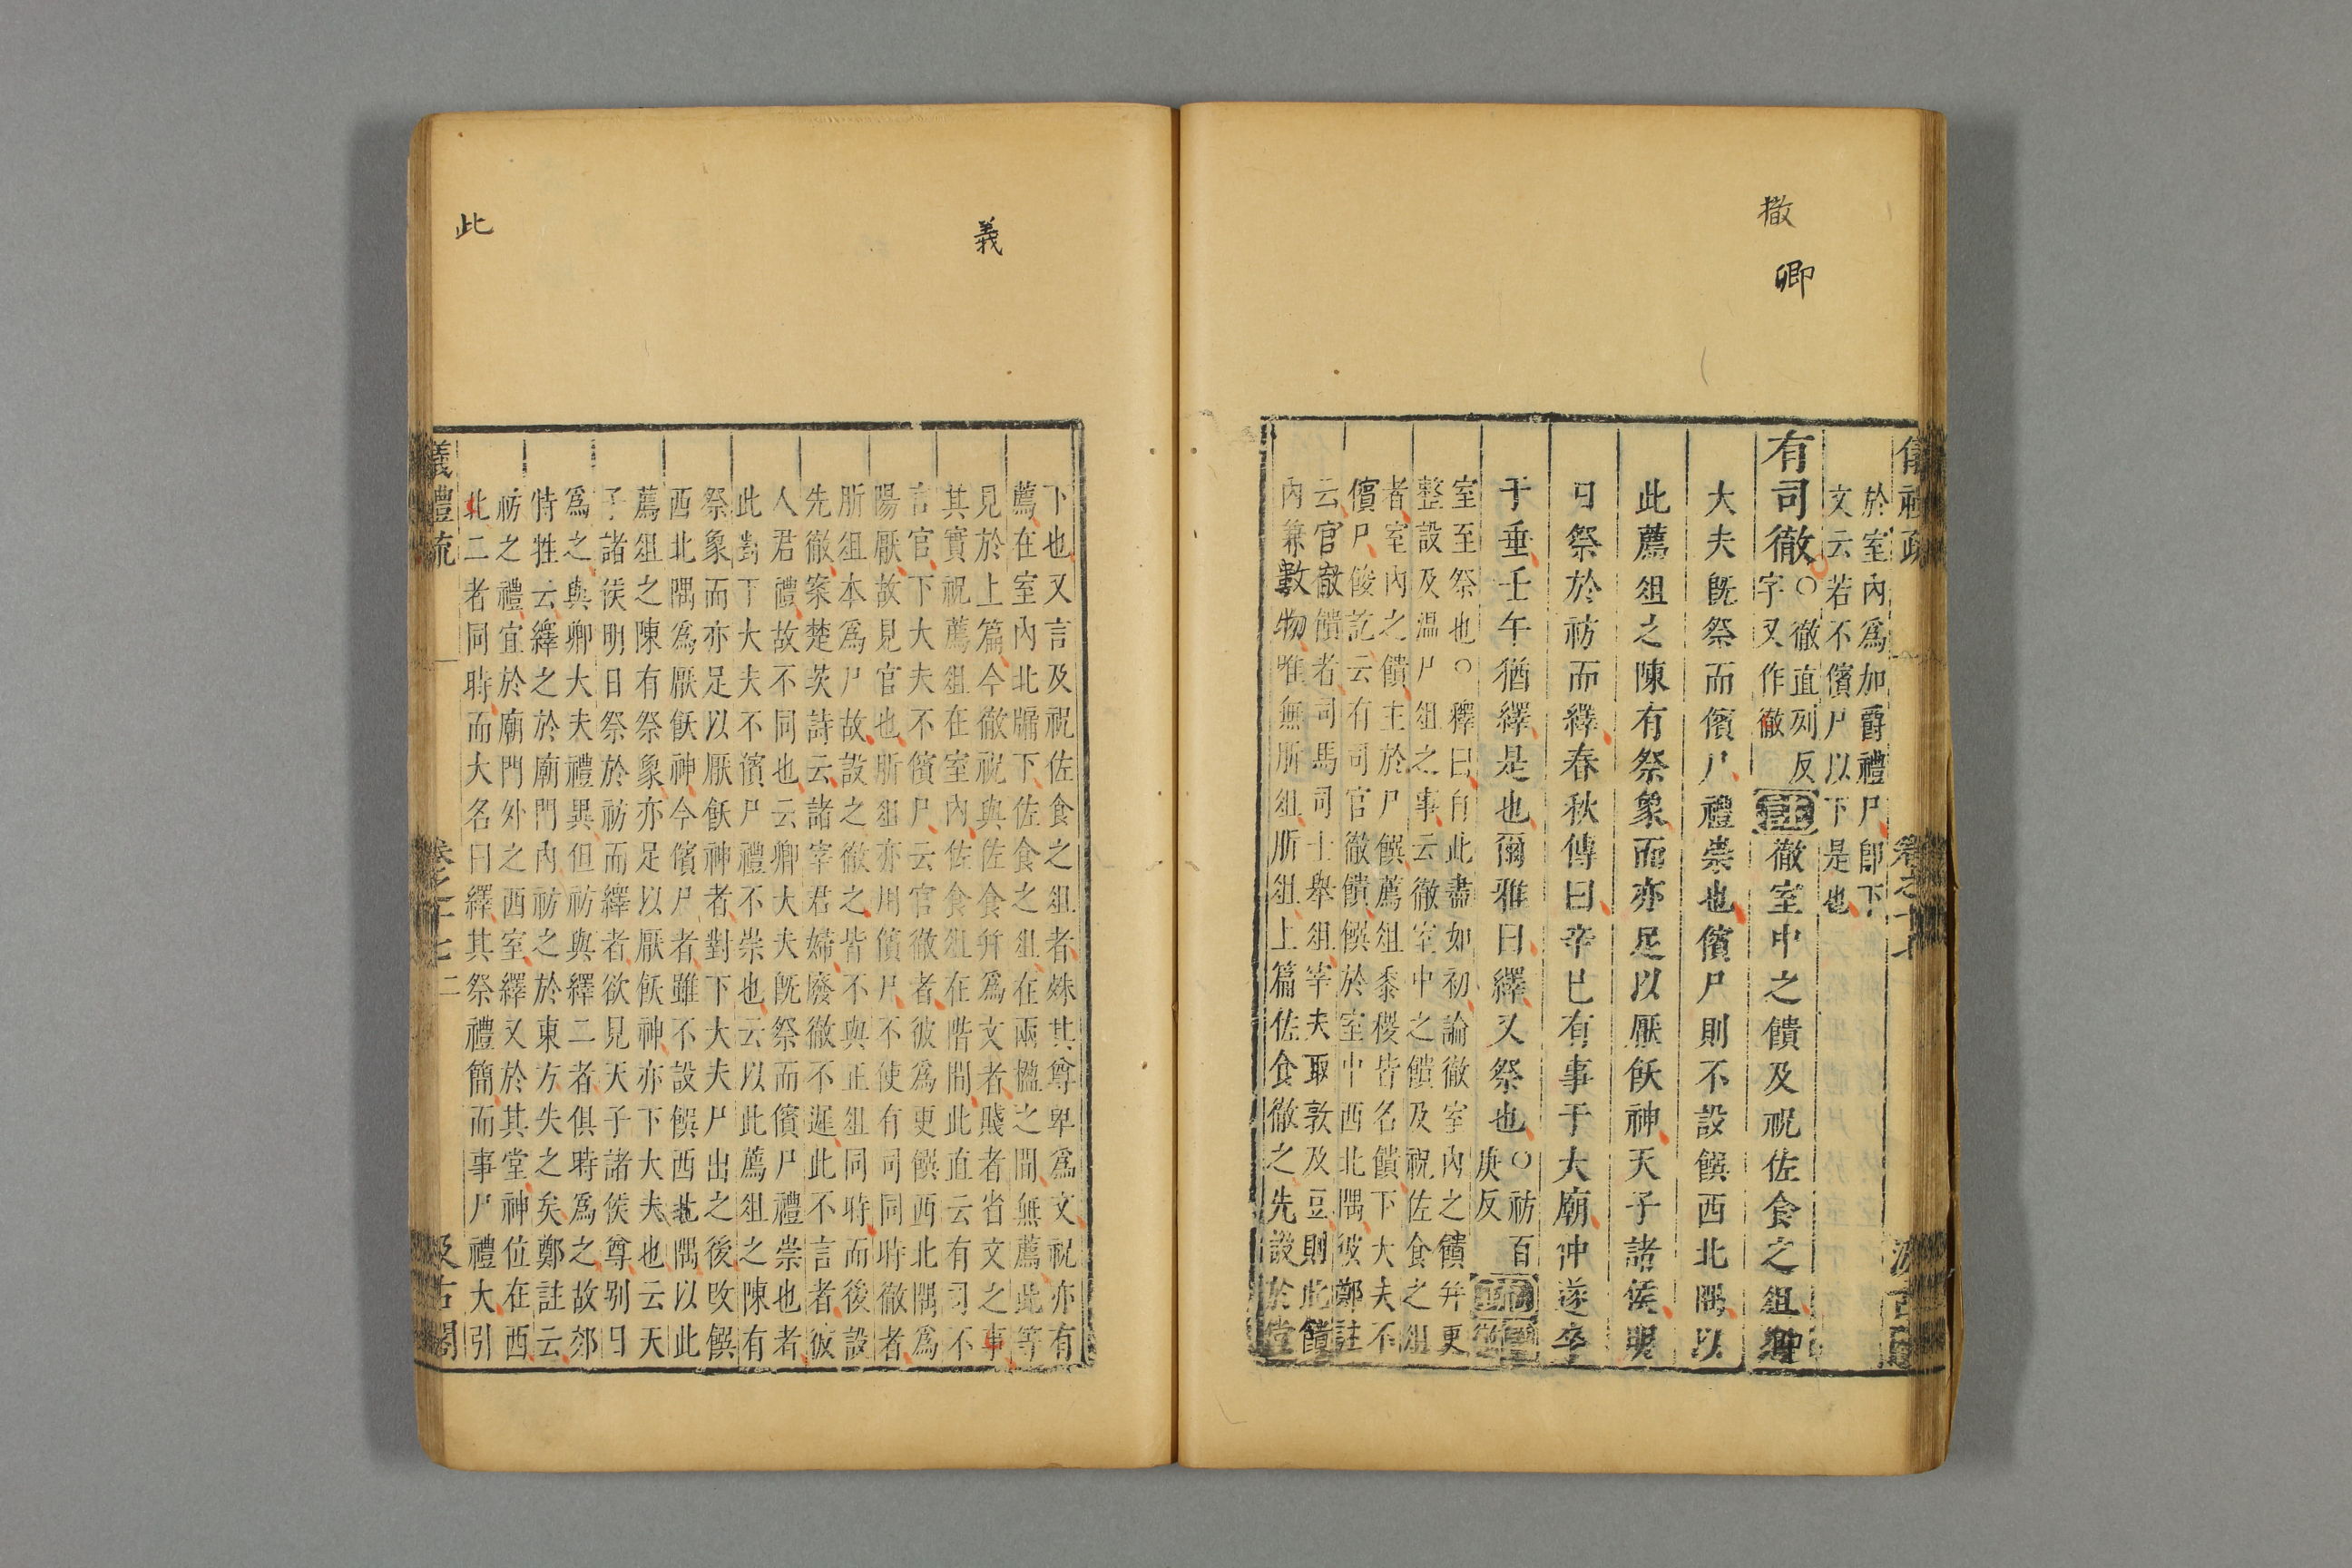 撤
卿
於室內爲加爵禮尸卽下
文云若不儐尸以下是也
有司徹
○徹直列反
字又作徹
徹室中之饋及祝佐食之俎卿
大夫旣祭而儐尸禮崇也儐尸則不設饌西北隅以
此薦俎之陳有祭象而亦足以厭飫神天子諸侯明
日祭於祊而繹春秋傳曰辛巳有事于大廟仲遂卒
于垂壬午猶繹是也爾雅曰繹又祭也
○祊百
庚反
室至祭也○釋曰自此盡如初論徹室內之饋并更
整設及温尸俎之事云徹室中之饋及祝佐食之俎
者室內之饋主於尸饌薦俎黍稷皆名饋下大夫不
儐尸傻記云有司官徹饋饌於室中西北隅彼鄭註
云官徹饋者司馬司士舉俎宰夫取敦及豆則此饋
內兼數物唯無肵俎肵俎上篇佐食徹之先設於堂
義
此
下也又言及祝佐食之俎者殊其尊卑爲文祝亦有
薦在室內北牖下佐食之俎在兩楹之間無薦此等
見於上篇今徹祝與佐食并爲文者賤者省文之事
其實祝薦俎在室內佐食俎在階間此直云有司不
言官下大夫不儐尸云官徹者彼爲更饌西北隅爲
陽厭故見官也肵俎亦用儐尸不使有司同時徹者
肵俎本爲尸故設之徹之皆不與正俎同時而後設
先徹案楚茨詩云諸宰君婦廢徹不遲此不言者彼
人君禮故不同也云卿大夫旣祭而儐尸禮崇也者
此對下大夫不儐尸禮不崇也云以此薦俎之陳有
祭象而亦足以厭飫神者對下大夫尸出之後改饌
西北隅爲厭飫神今儐尸者雖不設饌西北隅以此
薦俎之陳有祭象亦足以厭飫神亦下大夫也云天
子諸侯明日祭於祊而繹者欲見天子諸侯尊别日
爲之與卿大夫禮異但祊與繹二者俱時爲之故郊
特牲云繹之於廟門內祊之於東方失之矣鄭註云
祊之禮宜於廟門外之西室繹又於其堂神位在西
北二者同時而大名曰繹其祭禮簡而事尸禮大引
儀禮疏 卷之十七 二 汲古閣